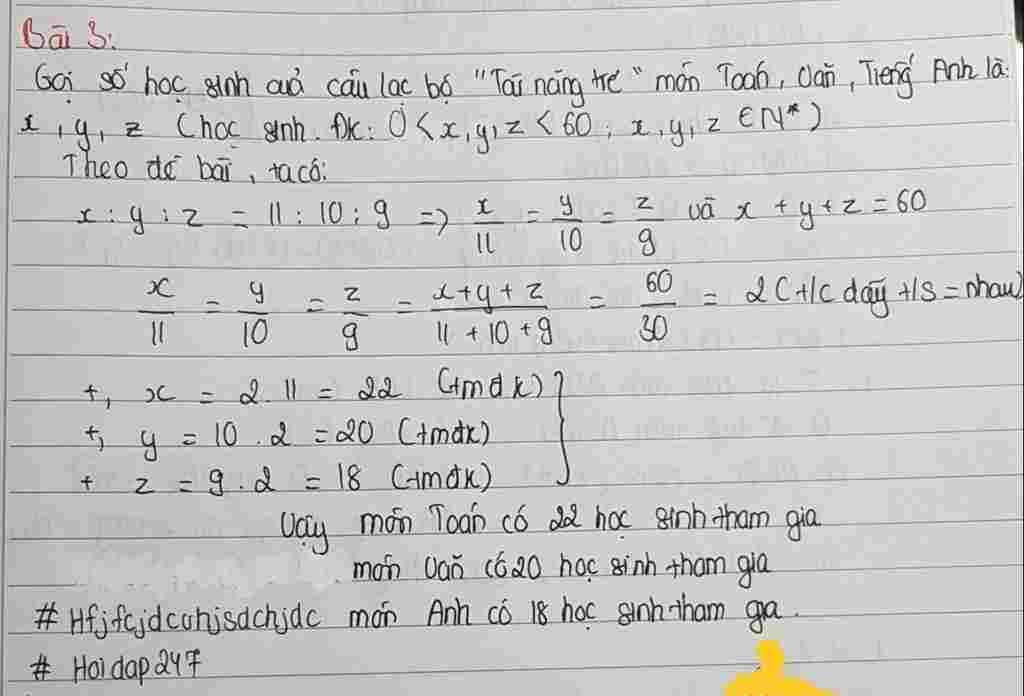 Bài 3:
Gọi số học sinh của câu lạc bộ "Tài năng trẻ" môn Toán, Văn, Tiếng Anh là:
x, y, z (học sinh. Đk: 0 < x, y, z < 60; x, y, z ∈ N*)
Theo đề bài, ta có:
x : y : z = 11 : 10 : 9 => x/11 = y/10 = z/9 và x + y + z = 60
x/11 = y/10 = z/9 = (x+y+z)/(11+10+9) = 60/30 = 2 (t/c dãy t/s = nhau)
+, x = 2.11 = 22 (tmđk)
+, y = 10.2 = 20 (tmđk)
+ z = 9.2 = 18 (tmđk)
Vậy môn Toán có 22 học sinh tham gia
môn Văn có 20 học sinh tham gia
môn Anh có 18 học sinh tham gia.
# Hoidap247